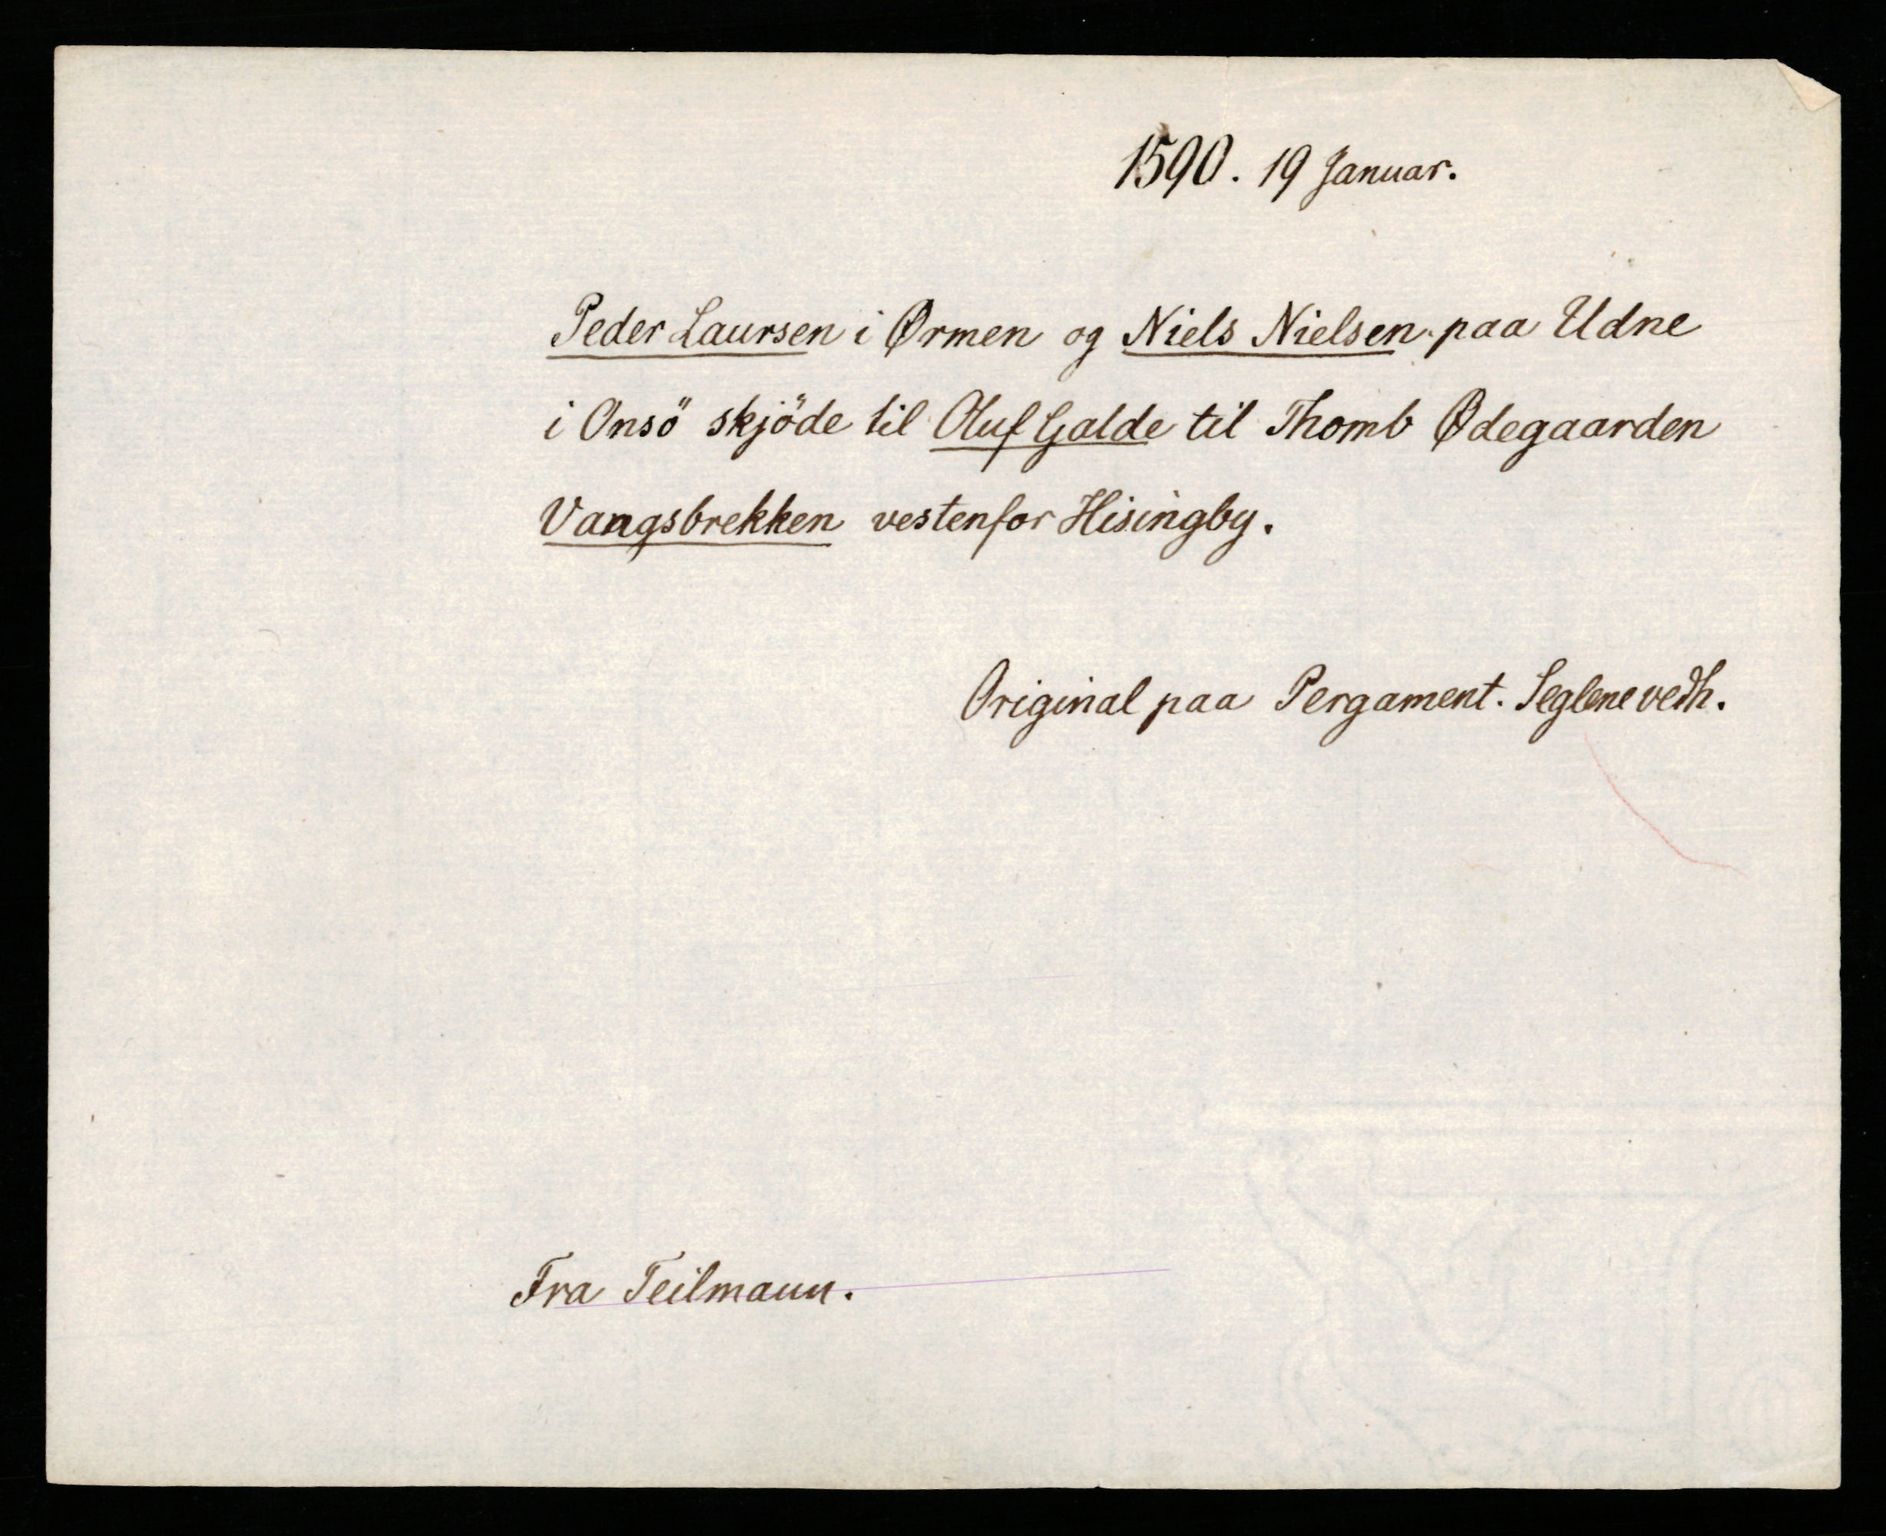 1590. 19 Januar.
Peder Laursen i Ørmen og Niels Nielsen paa Udne
i Onsö skjöde til Oluf Galde til Thomb Ødegaarden
Vangsbrekken vestenfor Hisingby.
Original paa Pergament. Seglene vedh.
Fra Teilmann.